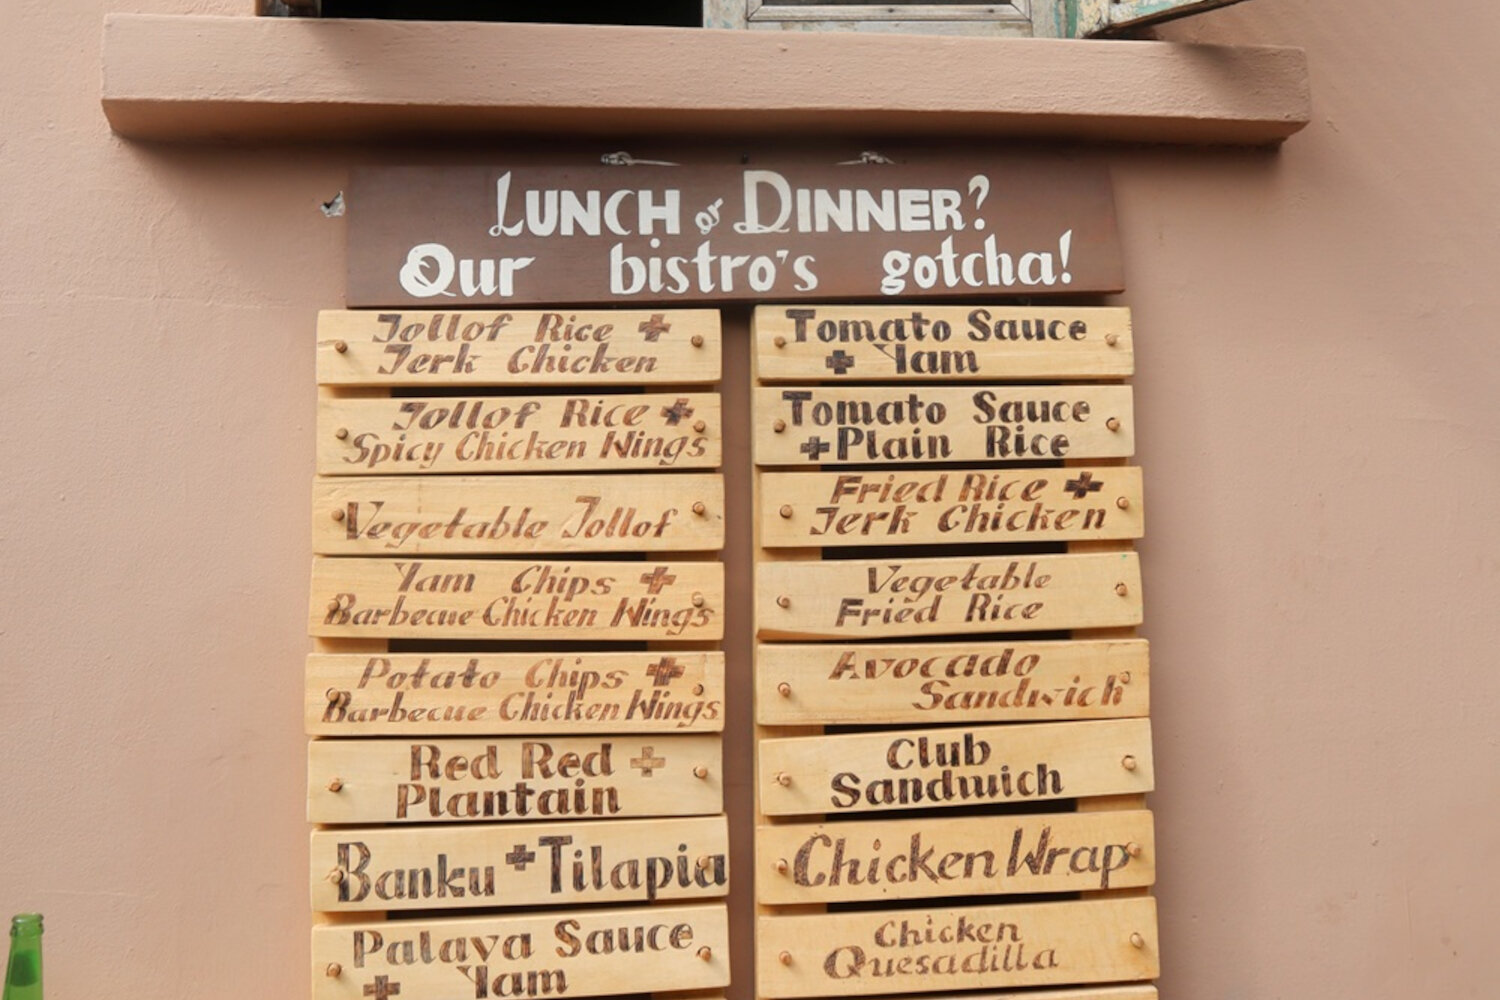 LUNCH or DINNER?
Our bistro's gotcha!
Jollof Rice +
Jerk Chicken
Jollof Rice +
Spicy Chicken Wings
Vegetable Jollof
Yam Chips +
Barbecue Chicken Wings
Potato Chips +
Barbecue Chicken Wings
Red Red +
Plantain
Banku + Tilapia
Palava Sauce
+ Yam
Tomato Sauce
+ Yam
Tomato Sauce
+ Plain Rice
Fried Rice +
Jerk Chicken
Vegetable
Fried Rice
Avocado
Sandwich
Club
Sandwich
Chicken Wrap
Chicken
Quesadilla